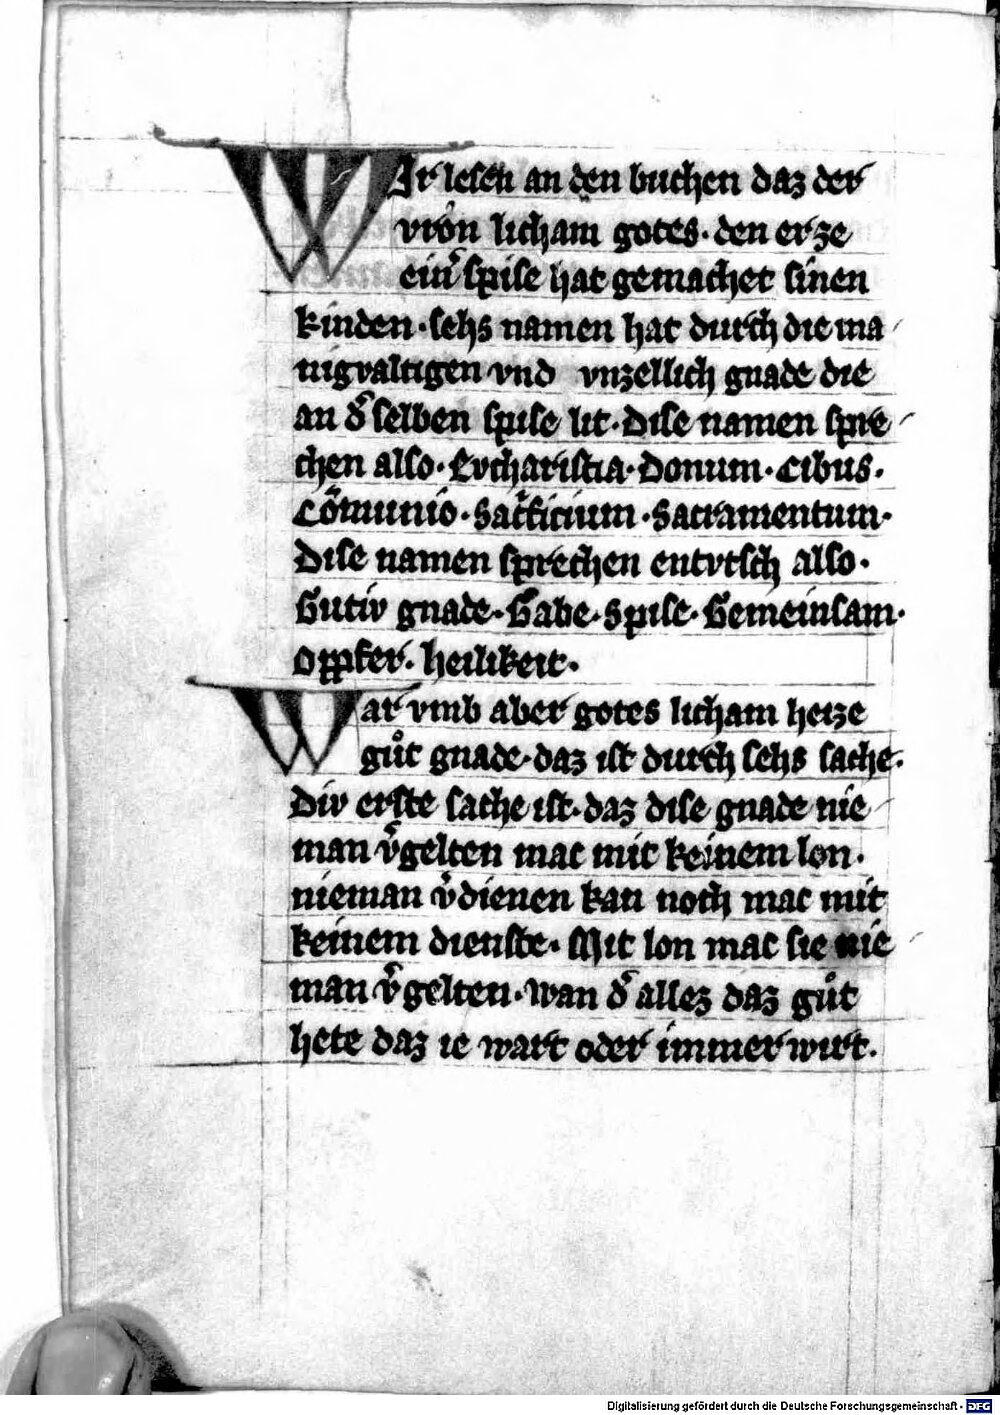 WIr lesen an den buchen daz der
vron licham gotes · den er ze
ein͛ spise hat gemachet sinen
kinden · sehs namen hat durch die ma
nigvaltigen vnd vnzellich gnade die
an d͛ selben spise lit · Dise namen spre
chen also · Evcharistia · Donum · Cibus ·
Cōmunio · Sac͛ficium · Sacramentum ·
Dise namen sprechen entvtsch also ·
Gutiv gnade · Gabe · Spise · Gemeinsam ·
Oppfer · heilikeit ·
War vmb aber gotes licham heize
gůt gnade · daz ist durch sehs sache ·
Div erste sache ist · daz dise gnade nie
man v͛gelten mac mit keinem lon ·
nieman v͛dienen kan noch mac mit
keinem dienste · Mit lon mac sie nie
man v͛gelten · wan d͛ allez daz gůt
hete daz ie wart oder immer wirt ·
Digitalisierung gefördert durch die Deutsche Forschungsgemeinschaft - DFG